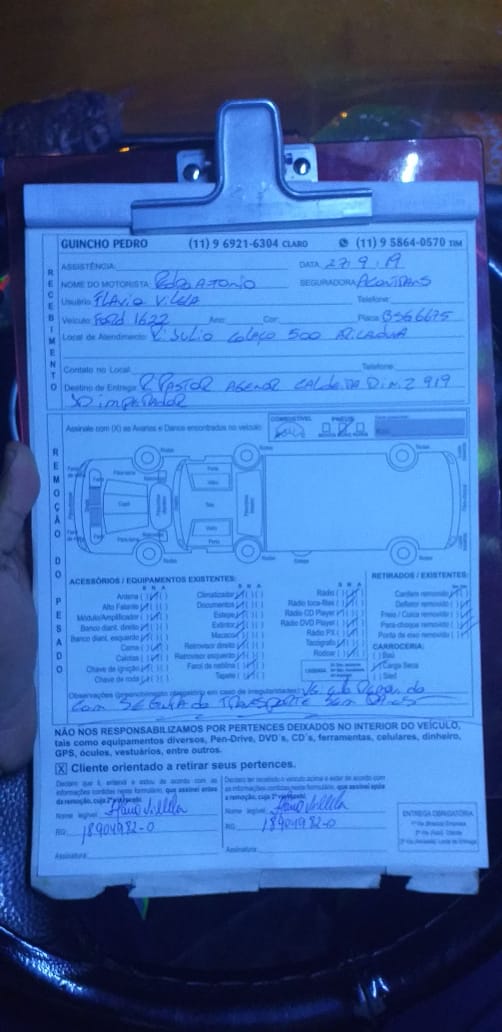 GUINCHO PEDRO (11) 9 6921-6304 CLARO (11) 9 5864-0570 TIM
RECEBIMENTO
ASSISTÊNCIA: DATA 27.9.19
NOME DO MOTORISTA: Pedro Antonio SEGURADORA
Usuário FLAVIO VILELA Telefone:
Veículo: Ford 1622 Ano: Cor: Placa
Local de Atendimento: R. JULIO COLAÇO 500
Contato no Local: Telefone:
Destino de Entrega: R PASTOR AGENOR CALDEIRA DINIZ 919
JD imperador
Assinale com (X) as Avarias e Danos encontrados no veículo
COMBUSTÍVEL
PNEUS
REMOÇÃO DO PESADO
ACESSÓRIOS / EQUIPAMENTOS EXISTENTES:
S N A
Antena
Alto Falante
Módulo/Amplificador
Banco diant. direito
Banco diant. esquerdo
Cama
Calotas
Chave de ignição
Chave de roda
Climatizador
Documentos
Estepe
Extintor
Macaco
Retrovisor direito
Retrovisor esquerdo
Farol de neblina
Tapete
S N A
Rádio
Rádio toca-fitas
Rádio CD Player
Rádio DVD Player
Rádio PX
Tacógrafo
Rodoar
RETIRADOS / EXISTENTES:
Cardam removido
Defletor removido
Freio / Cuica removido
Para-choque removido
Ponta de eixo removido
CARROCERIA:
Baú
Carga Seca
Sied
Observações (preenchimento obrigatório em caso de irregularidades)
Com SEGURADO TRANSPORTE Sem
NÃO NOS RESPONSABILIZAMOS POR PERTENCES DEIXADOS NO INTERIOR DO VEÍCULO,
tais como equipamentos diversos, Pen-Drive, DVD´s, CD´s, ferramentas, celulares, dinheiro,
GPS, óculos, vestuários, entre outros.
X Cliente orientado a retirar seus pertences.
Declaro que li, entendi e estou de acordo com as
informações contidas neste formulário, que assinei antes
da remoção, cuja 2ª via recebi
Nome legível: Flavio Villela
RG: 18904982-0
Assinatura:
Declaro ter recebido o veículo acima e estar de acordo com
as informações contidas neste formulário, que assinei após
a remoção, cuja 2ª via recebi.
Nome legível: Flavio Villela
RG: 18904982-0
Assinatura:
ENTREGA OBRIGATÓRIA
1ª Via (Branca) Empresa
2ª Via (Azul) Cliente
3ª Via (Amarela) Local de Entrega